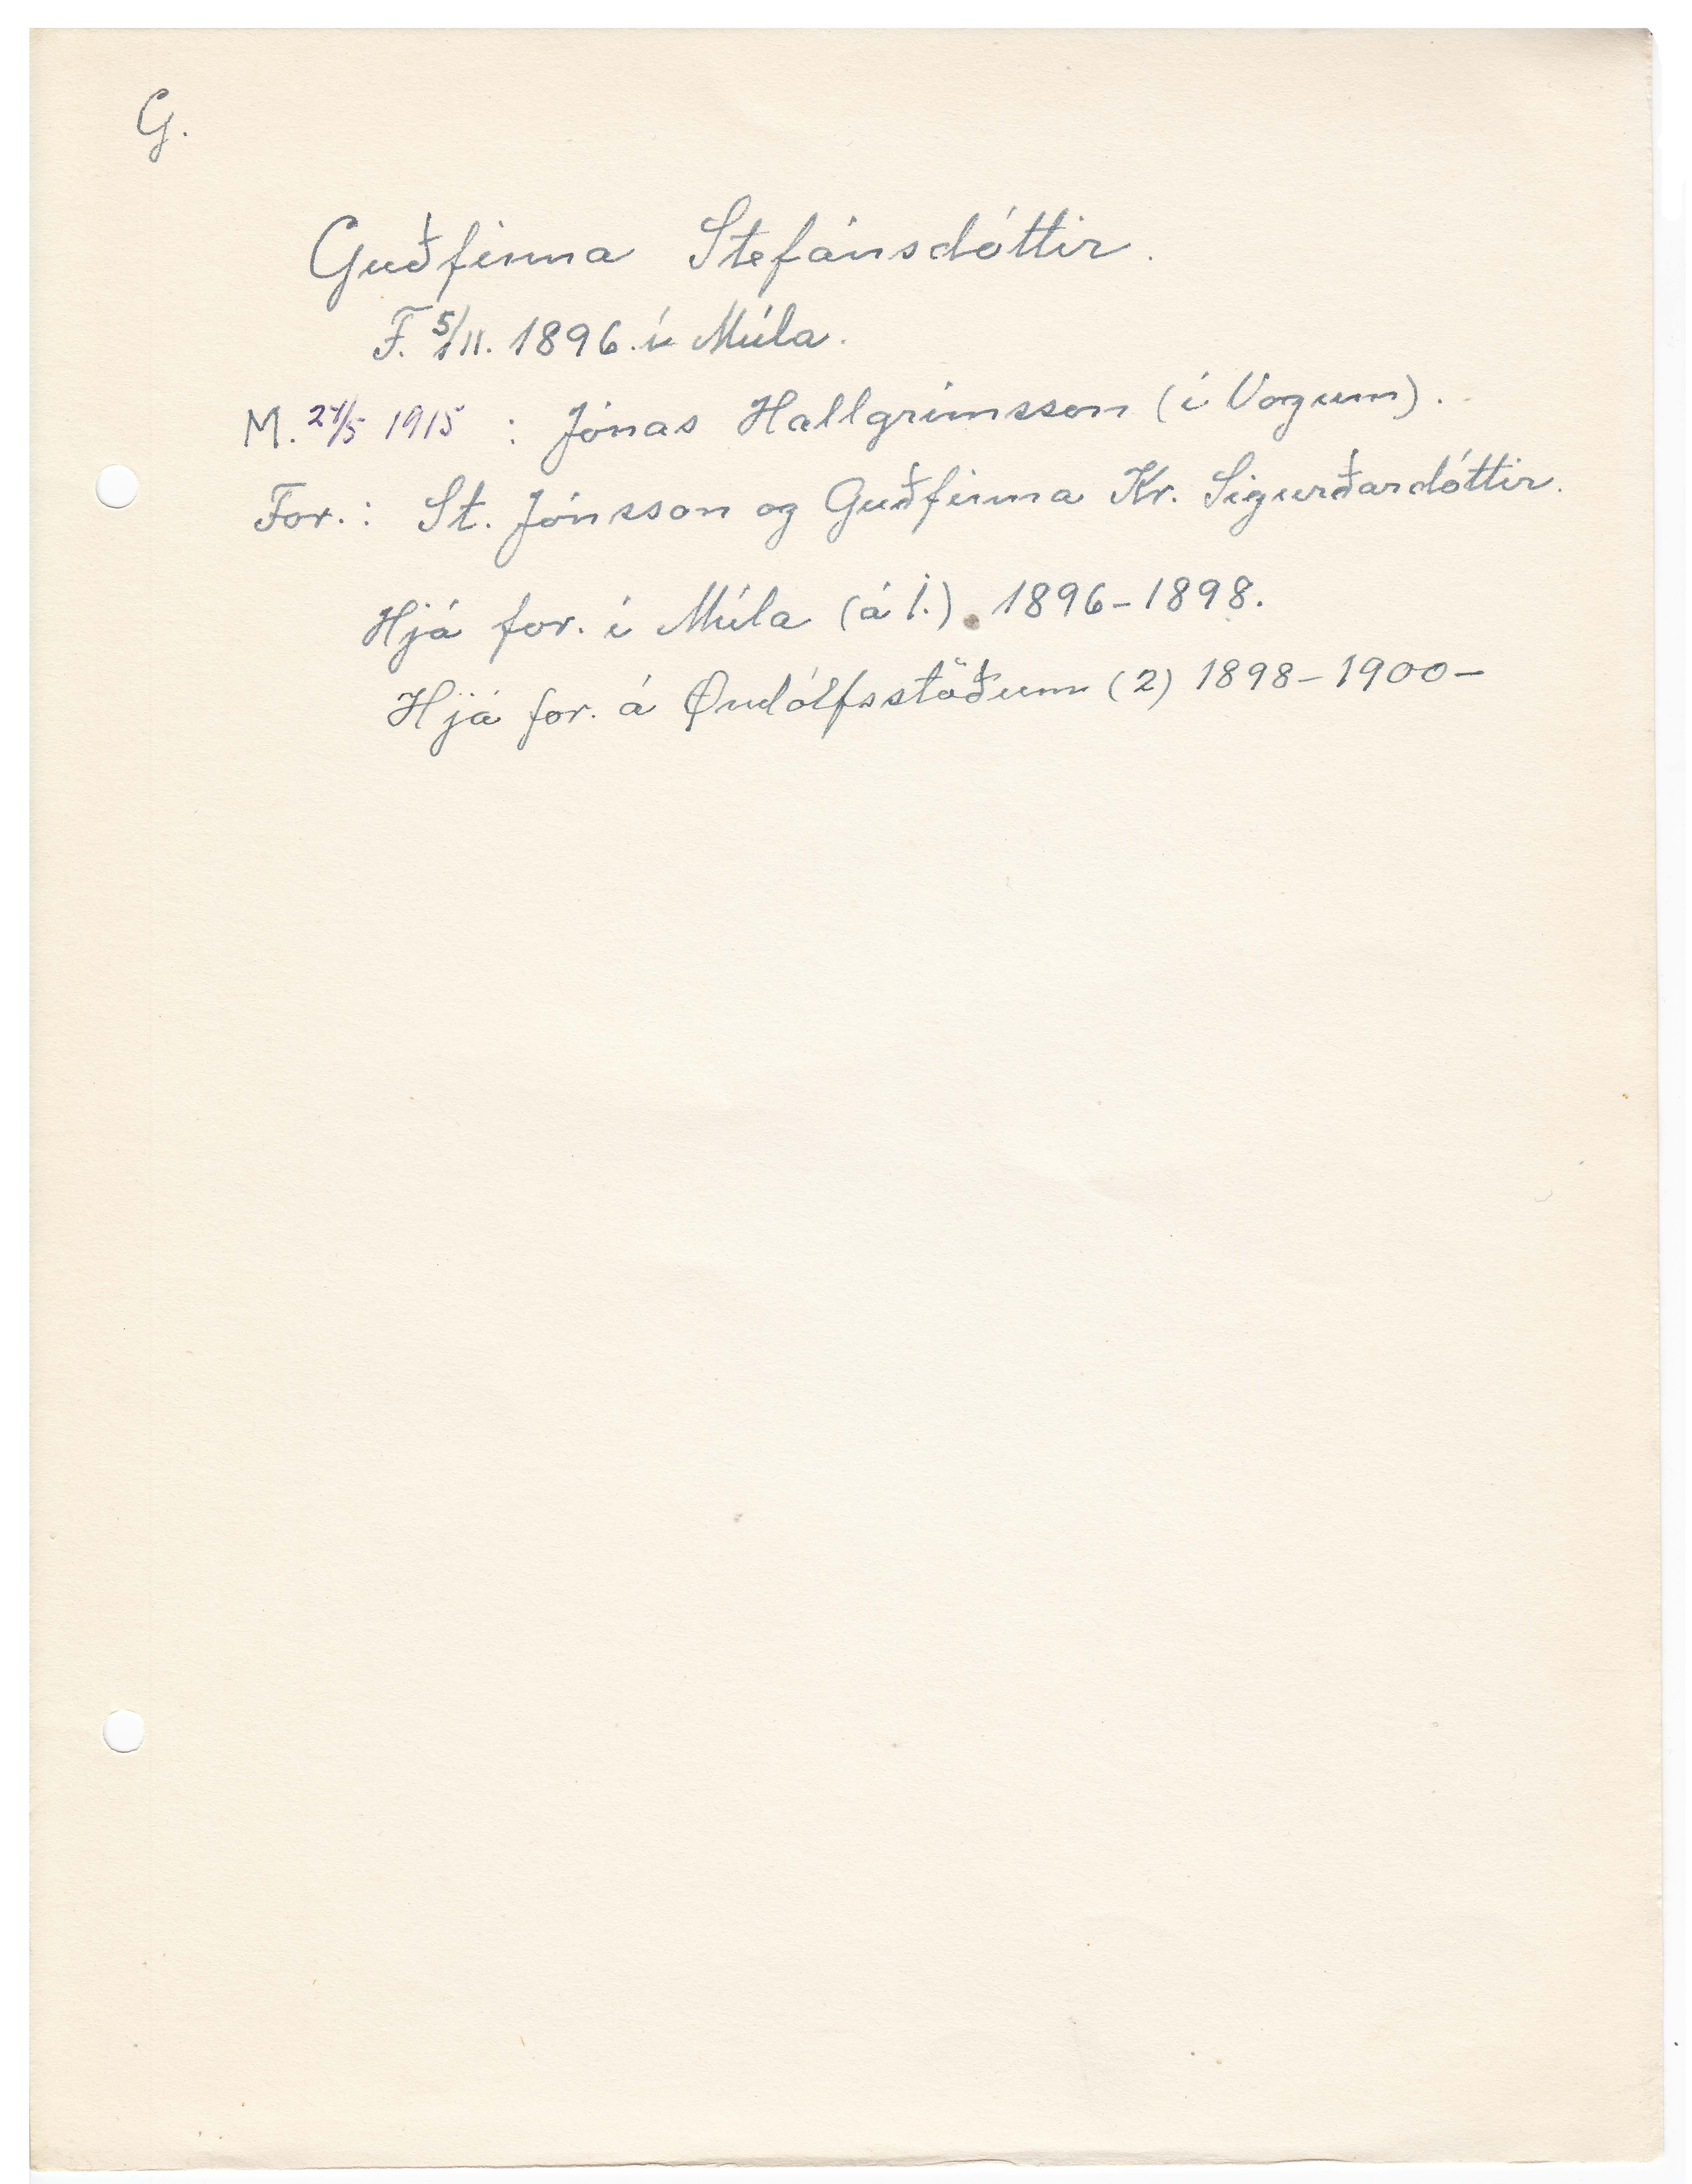 G.
Guðfinna Stefánsdóttir.
F. 5/11. 1896 í Múla.
M. 24/5 1915 : Jónas Hallgrímsson (í Vogum).
For.: St. Jónsson og Guðfinna Kr. Sigurðardóttir.
Hjá for. í Múla (á 1.) 1896-1898.
Hjá for. á Öndólfsstöðum (2) 1898-1900-